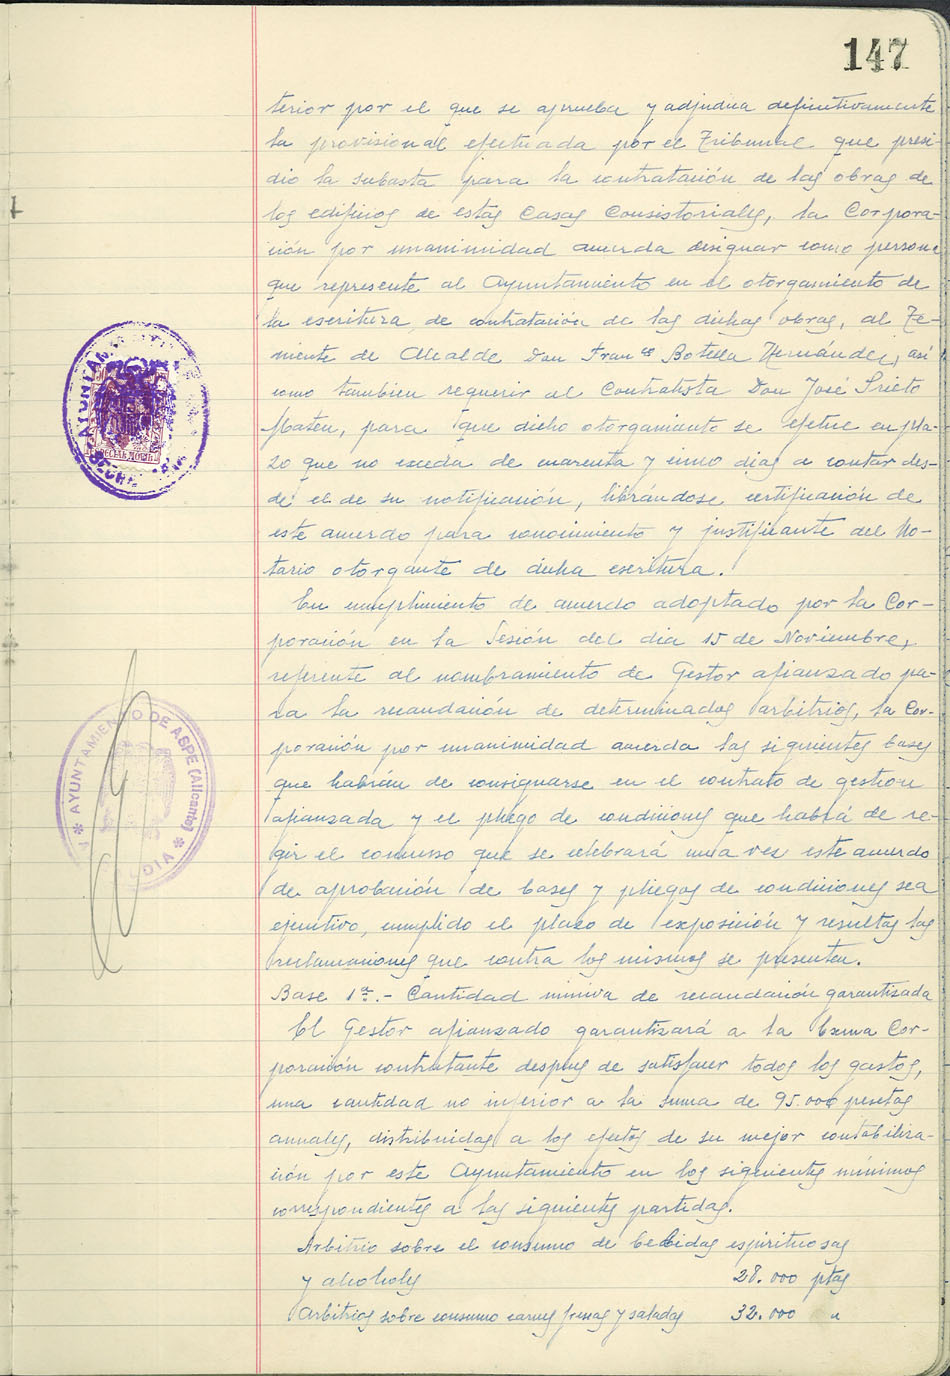 147
terior por el que se aprueba y adjudica definitivamente
la provisional efectuada por el Tribunal que presi-
dio la subasta para la contratación de las obras de
los edificios de estas Casas Consistoriales, la Corpora-
ción por unanimidad acuerda designar como persona
que represente al Ayuntamiento en el otorgamiento de
la escritura de contratación de las dichas obras, al Te-
niente de Alcalde Don Franco Botella Hernández, así
como tambien requerir al Contratista Don José Prieto
Mateu, para que dicho otorgamiento se efectue en pla-
zo que no exceda de cuarenta y cinco dias a contar des-
de el de su notificación, librándose certificación de
este acuerdo para conocimiento y justificante del No-
tario otorgante de dicha escritura.
En cumplimiento de acuerdo adoptado por la Cor-
poración en la Sesión del dia 15 de Noviembre,
referente al nombramiento de Gestor afianzado pa-
ra la recaudación de determinados arbitrios, la Cor-
poración por unanimidad acuerda las siguientes bases
que habrán de consignarse en el contrato de gestion
afianzada y el pliego de condiciones que habrá de re-
gir el concurso que se celebrará una vez este acuerdo
de aprobación de bases y pliegos de condiciones sea
ejecutivo, cumplido el plazo de exposición y resueltas las
reclamaciones que contra los mismos se presenten.
Base 1ª.- Cantidad miniva de recaudación garantizada
El Gestor afianzado garantizará a la Exma Cor-
poración contratante despues de satisfacer todos los gastos,
una cantidad no inferior a la suma de 95.000 pesetas
anuales, distribuidas a los efectos de su mejor contabiliza-
ción por este Ayuntamiento en los siguientes mínimos
correspondientes a las siguientes partidas.
Arbitrio sobre el consumo de bebidas espirituosas
y alcoholes 28.000 ptas
Arbitrios sobre consumo carnes frescas y saladas 32.000 "
AYUNTAMIENTO DE ASPE (Alicante)
ESPECIAL MOVIL